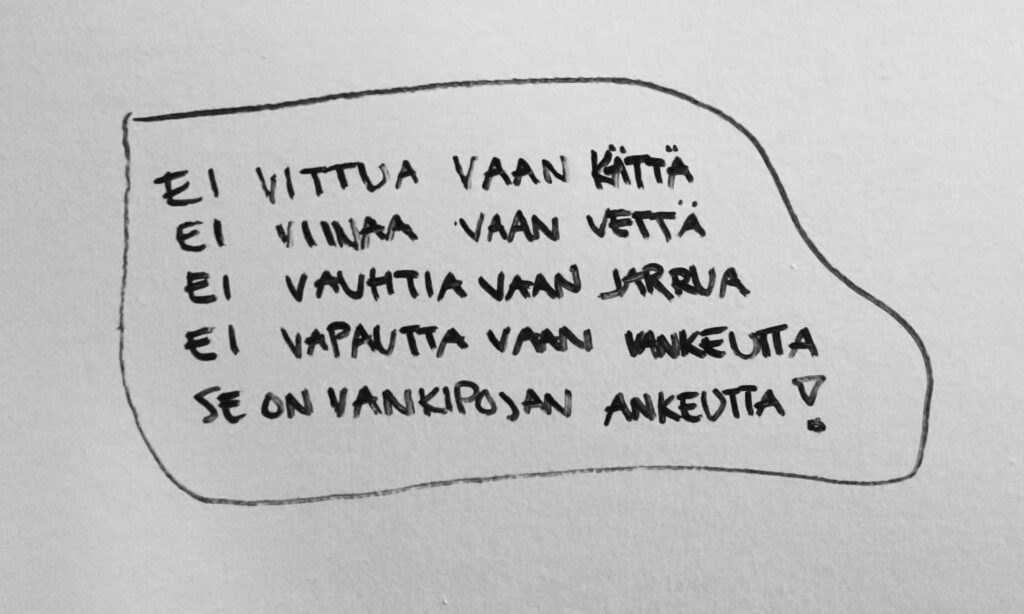 EI VITTUA VAAN KÄTTÄ
EI VIINAA VAAN VETTÄ
EI VAUHTIA VAAN JARRUA
EI VAPAUTTA VAAN VANKEUTTA
SE ON VANKIPOJAN ANKEUTTA!